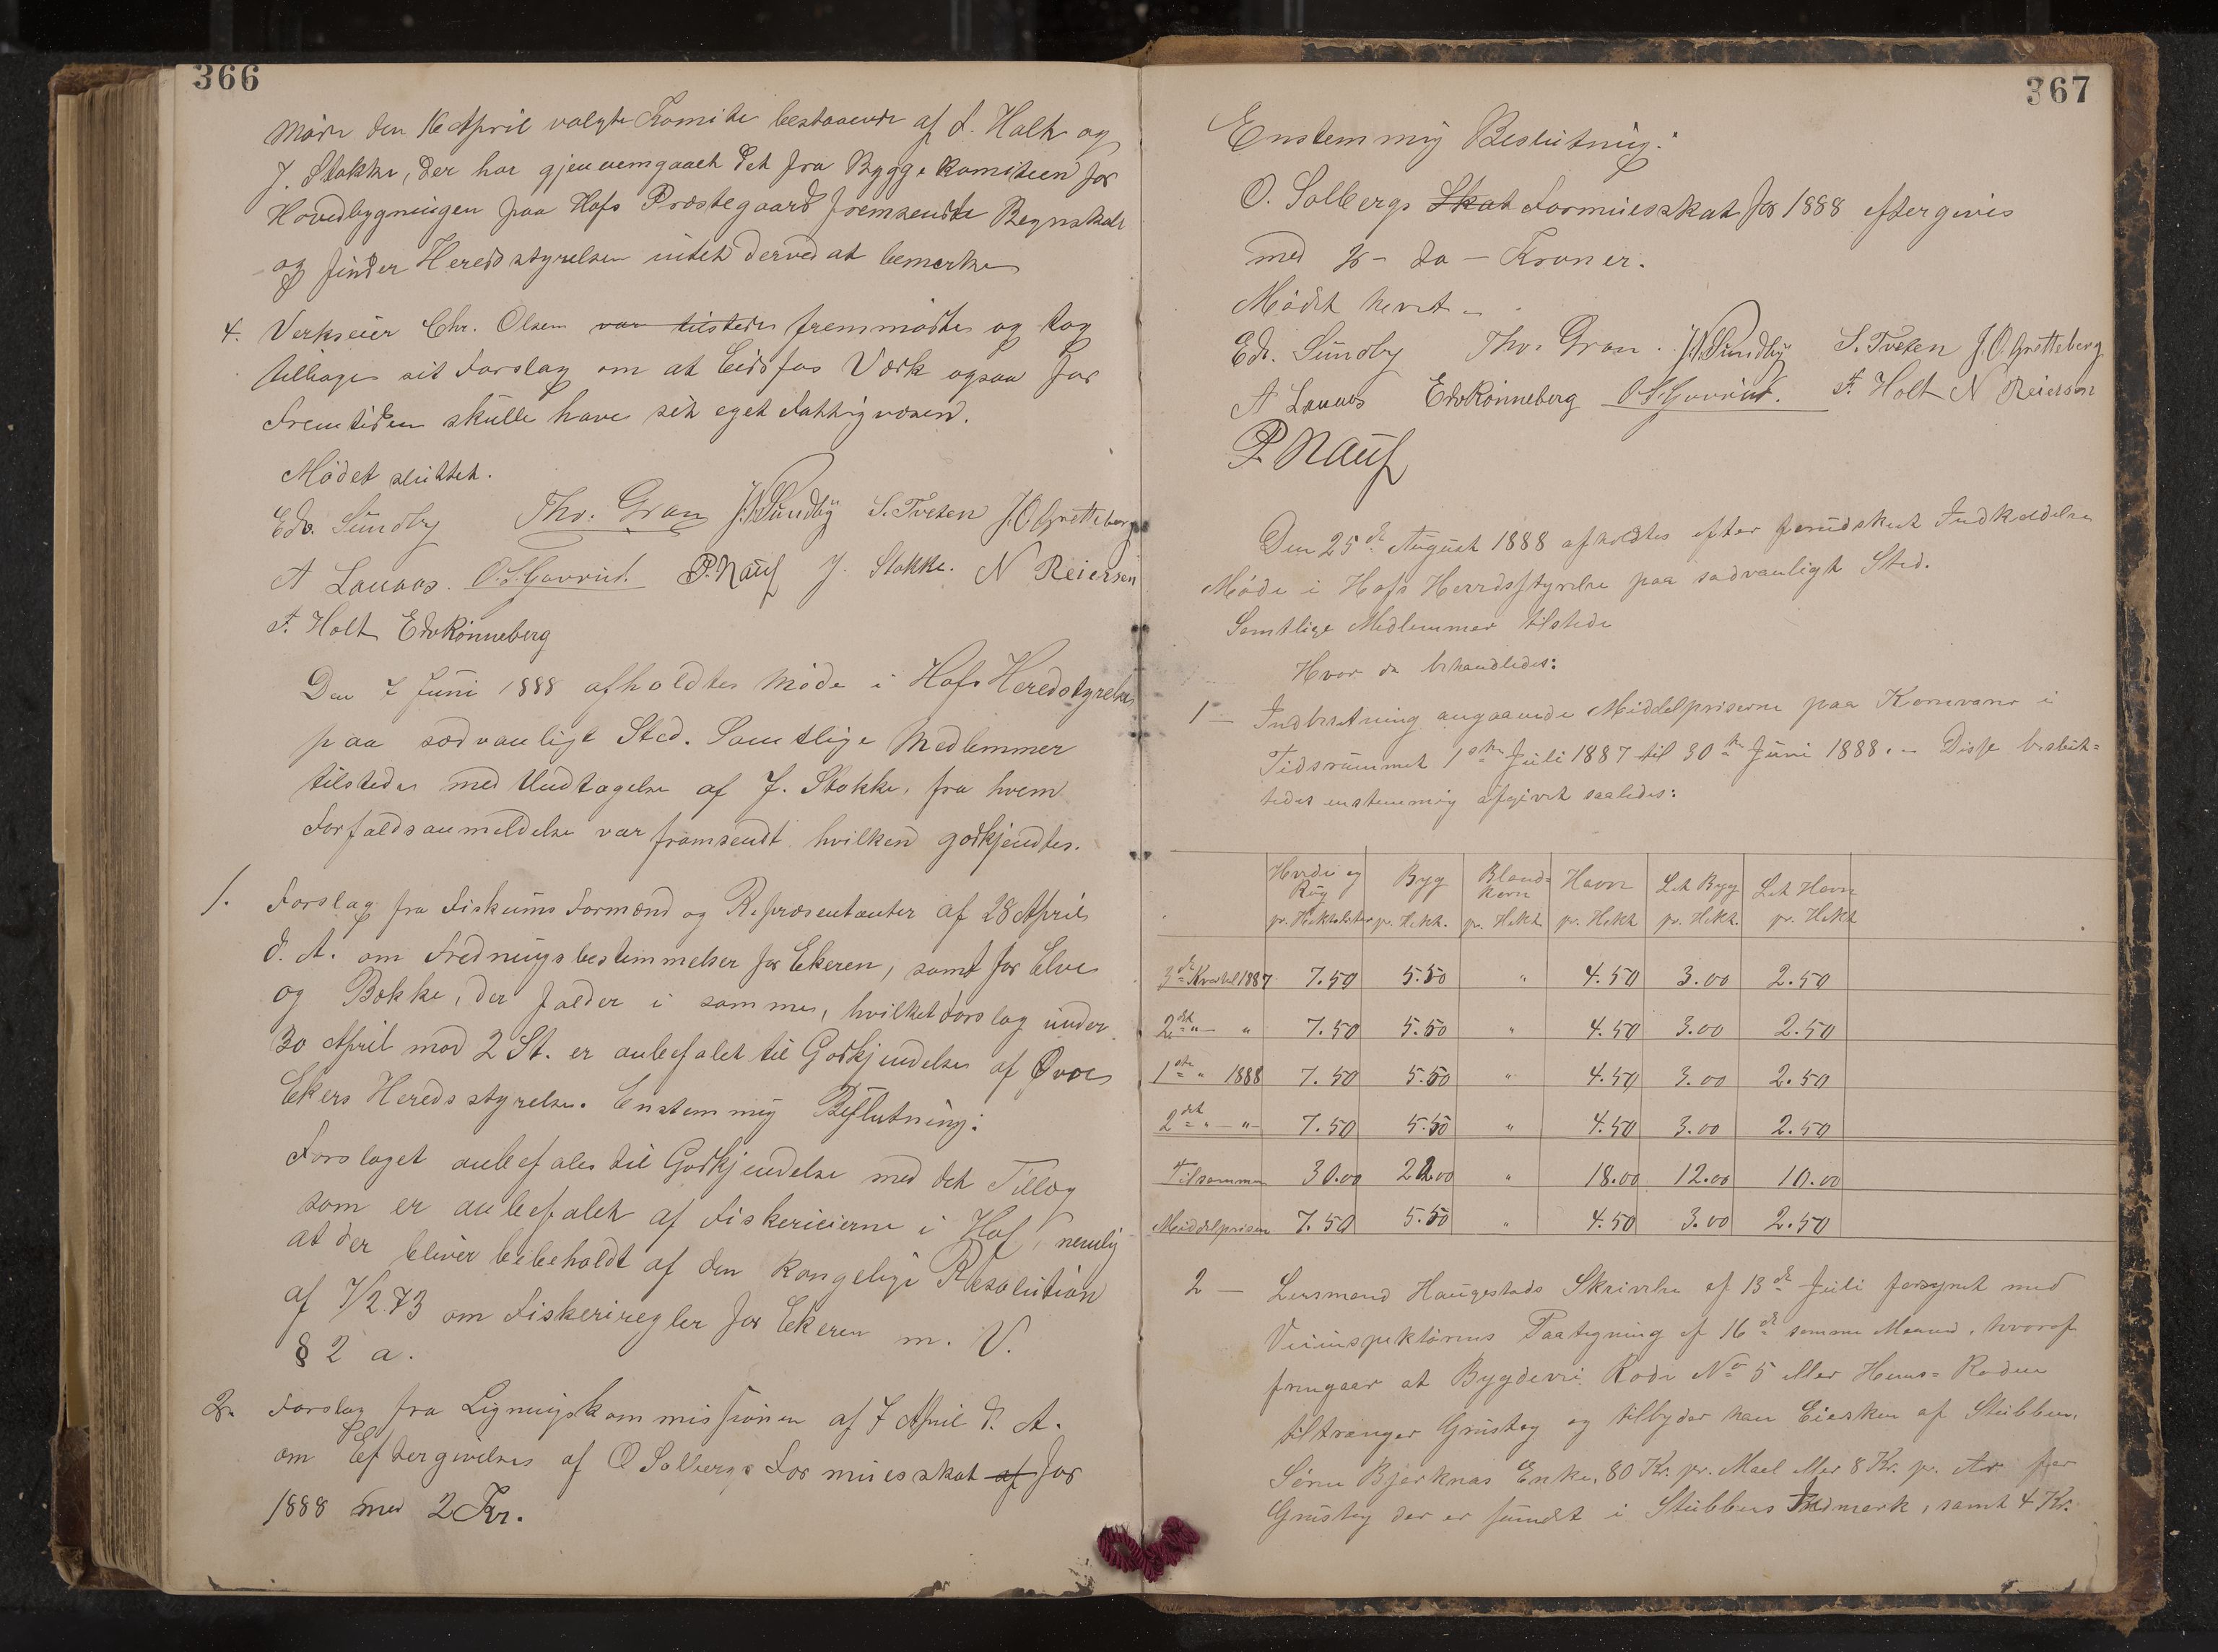 366
Møde den 16 April valgte Komite bestaaende af F. Holt og
J. Stokke, der har gjennemgaaet det fra Byggekomiteen for
Hovedbygningen paa Hofs Præstegaard fremsendte Regnskab
og finder Heredsstyrelsen intet derved at bemerke
4. Verkseier Chr. Olsen var tilstede fremmødte og tog
tilbage sit Forslag om at Eidsfos Værk ogsaa for
Fremtiden skulle have sit eget Fattigvæsend.
Mødet sluttet.
Edv. Sundby Thv. Gran J. N. Sundby S. Tveten J. O. Grøtteberg
A Lauaas. O. S. Gavrud. P. Nauf J. Stokke. N Reiersen
F. Holt Edv Rønneberg
Den 7 Juni 1888 afholdtes Møde i Hofs Heredstyrelse
paa sædvanligt Sted. Samtlige Medlemmer
tilstede med Undtagelse af J. Stokke, fra hvem
Forfaldsanmeldelse var framsendt hvilken godkjendtes.
1. Forslag fra Fiskums Formænd og Repræsentanter af 28 April
d. A. om Fredningsbestemmelser for Ekeren, samt for Elve
og Bække, der falder i samme, hvilket Forslag under
30 April mod 2 St. er anbefalet til Godkjendelse af Øvre
Ekers Heredsstyrelse. Enstemmig Beslutning:
Forslaget anbefales til Godkjendelse med det Tillæg
som er anbefalet af Fiskerieierne i Hof, nemlig
at der bliver bibeholdt af den kongelige Resolution
af 7/2 73 om Fiskeriregler for Ekeren m. V.
§ 2 a.
2. Forslag fra Ligningskommissionen af 7 April d. A.
om Eftergivelse af O Solbergs Formuesskat af for
1888 med 2 Kr.
367
Enstemmig Beslutning:
O. Solbergs Skat Formuesskat for 1888 eftergives
med to Kroner.
Mødet hevet
Edv. Sundby Thv. Gran. J. N. Sundby S. Tveten J. O. Grøtteberg
A Lauaas Edv Rønneberg O. S. Gavrud. F. Holt N Reiersen
P. Nauf
Den 25de August 1888 afholdtes efter forudskeet Indkaldelse
Møde i Hofs Herredsstyrelse paa sædvanligt Sted.
Samtlige Medlemmer tilstede
Hvor da behandledes:
1 – Indberetning angaaende Middelpriserne paa Kornvarer i
Tidsrummet 1ste Juli 1887 til 30te Juni 1888. – Disse beslut=
tedes enstemmig afgivet saaledes:
Hvede og Rug pr. Hektoliter Byg pr. Hekt. Bland=korn pr. Hekt Havre pr. Hekt Let Byg pr. Hekt. Let Havre pr. Hekt
3de Kvartal 1887 7.50 5.50 " 4.50 3.00 2.50
2det " – " 7.50 5.50 " 4.50 3.00 2.50
1ste " 1888 7.50 5.50 " 4.50 3.00 2.50
2det " – " 7.50 5.50 " 4.50 3.00 2.50
Tilsammen 30.00 22.00 " 18.00 12.00 10.00
Middelprisen 7.50 5.50 " 4.50 3.00 2.50
2 – Lensmand Haugestads Skrivelse af 13de Juli forsynet med
Veiinspektørens Paategning af 16de samme Maaned, hvoraf
fremgaar at Bygdevei Rode No 5 eller Roden
tiltrænger Grustag og tilbyder han Eiersken af Stubben,
Bjerknæs Enke, 80 Kr. pr. Maal eller 8 Kr. pr. Ar for
Grustag der er fundet i Stubbens Indmark, samt 4 Kr.